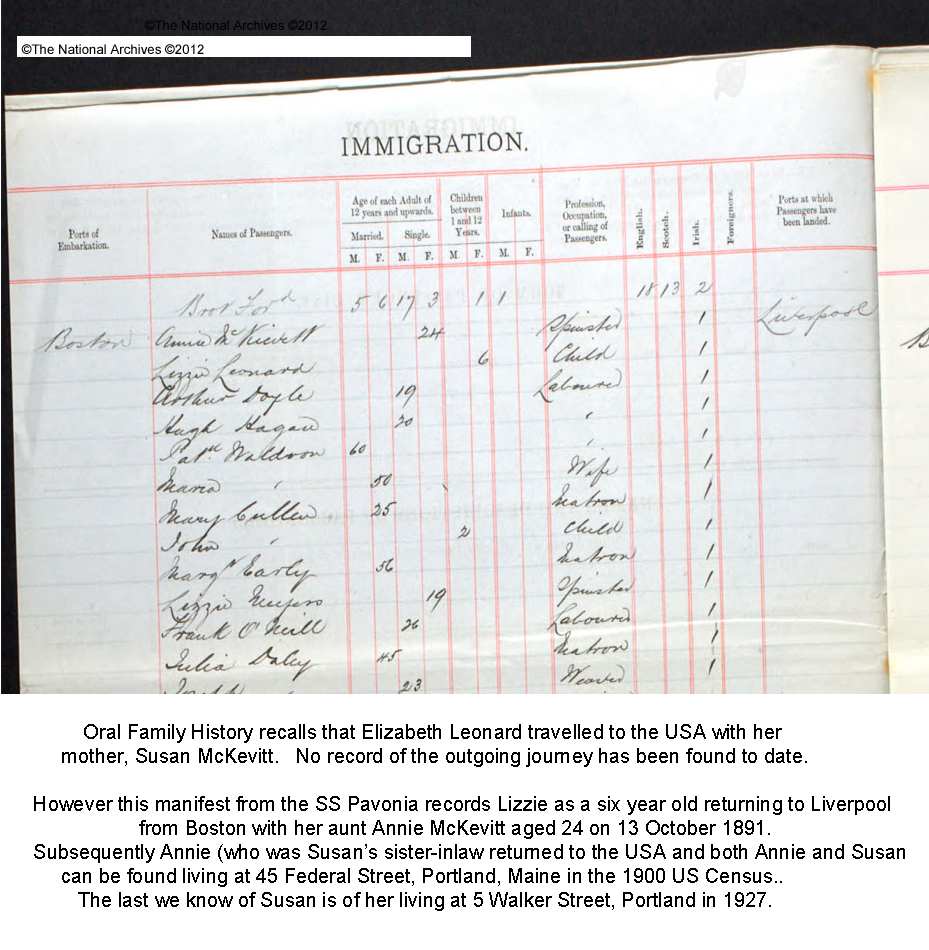 ©The National Archives ©2012
©The National Archives ©2012
IMMIGRATION.
Ports of Embarkation. Names of Passengers. Age of each Adult of 12 years and upwards. Children between 1 and 12 Years. Infants. Profession, Occupation, or calling of Passengers. English. Scotch. Irish. Foreigners. Ports at which Passengers have been landed.
Married. Single.
M. F. M. F. M. F. M. F.
Brot Ford 5 6 17 3 1 1 18 13 2
Boston Annie McKievett 24 Spinster 1 Liverpool
Lizzie Leonard 6 Child 1
Arthur Doyle 19 Labourer 1
Hugh Hagan 20 " 1
Patk Waldron 60 " 1
Maria " 50 Wife 1
Mary Cullen 25 Matron 1
John " 2 Child 1
Margt Early 56 Matron 1
Lizzie 19 Spinster 1
Frank O'Neill 26 Labourer 1
Julia Daley 45 Matron 1
Joseph 23 Weaver 1
Oral Family History recalls that Elizabeth Leonard travelled to the USA with her
mother, Susan McKevitt. No record of the outgoing journey has been found to date.
However this manifest from the SS Pavonia records Lizzie as a six year old returning to Liverpool
from Boston with her aunt Annie McKevitt aged 24 on 13 October 1891.
Subsequently Annie (who was Susan's sister-inlaw returned to the USA and both Annie and Susan
can be found living at 45 Federal Street, Portland, Maine in the 1900 US Census..
The last we know of Susan is of her living at 5 Walker Street, Portland in 1927.